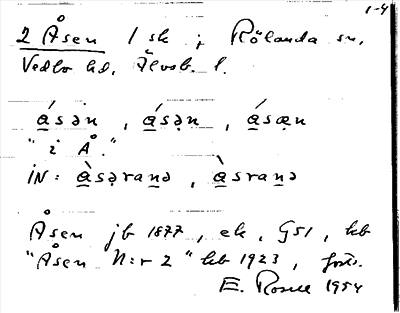 1-4
2 Åsen 1 sk i Rölanda sn,
Vedbo hd, Älvsb. l.
á̲sən, á̲sə̣n, á̲sæn
"i Å."
IN: à̲sə̣ran̲ə, à̲sran̲ə
Åsen jb 1877, ek, G51, kb
"Åsen N:r 2" kb 1923,
E. 1954